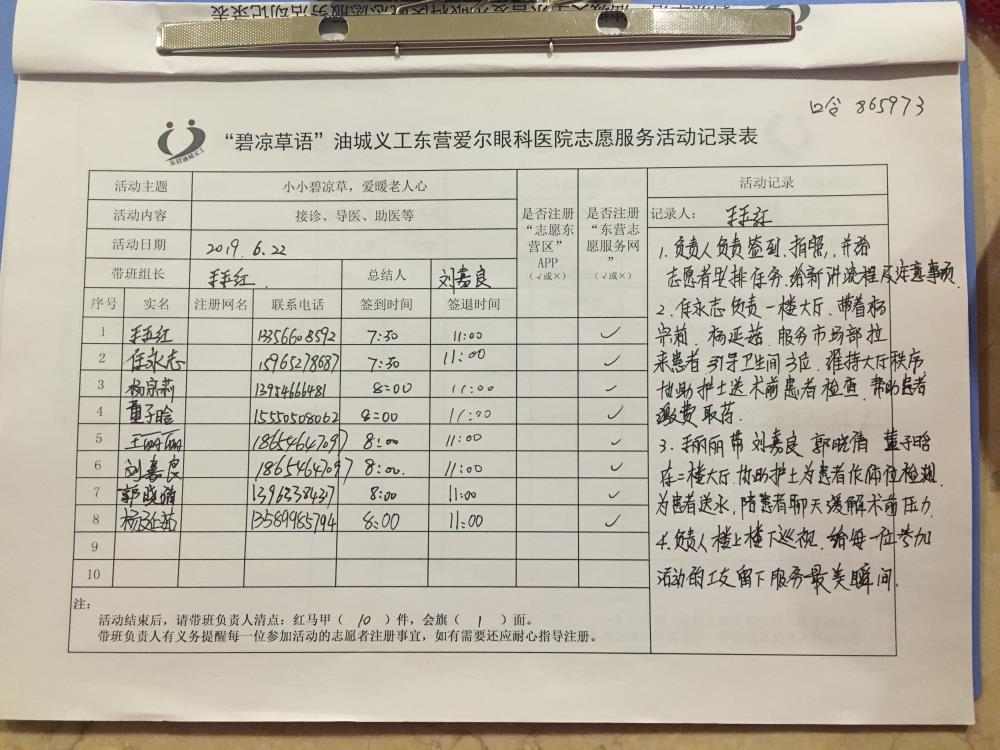 口令 865973
东营油城义工
“碧凉草语”油城义工东营爱尔眼科医院志愿服务活动记录表
活动主题 小小碧凉草，爱暖老人心
活动内容 接诊、导医、助医等
活动日期 2019.6.22
带班组长 总结人 刘嘉良
是否注册“志愿东营区”APP（√或×）
是否注册“东营志愿服务网”（√或×）
序号 实名 注册网名 联系电话 签到时间 签退时间
1 13356608592 7:30 11:00 ✓
2 任永志 15965278687 7:30 11:00 ✓
3 杨宗莉 13954666481 8:00 11:00 ✓
4 董子晗 15550508062 8:00 11:00 ✓
5 王丽丽 18654647097 8:00 11:00 ✓
6 刘嘉良 18654647097 8:00 11:00 ✓
7 郭晓倩 8:00 11:00 ✓
8 杨延茹 13589985794 8:00 11:00 ✓
9
10
注：
活动结束后，请带班负责人清点：红马甲（ 10 ）件，会旗（ 1 ）面。
带班负责人有义务提醒每一位参加活动的志愿者注册事宜，如有需要还应耐心指导注册。
活动记录
记录人：
1.负责人负责签到、拍照,并给
志愿者安排任务.给新讲流程及注意事项
2.任永志负责一楼大厅.带着杨
宗莉.杨延茹.服务市场部拉
来患者.引导卫生间方位.维持大厅秩序
协助护士送术前患者检查.帮助患者
缴费取药.
3.王丽丽带刘嘉良 郭晓倩 董子晗
在二楼大厅.协助护士为患者作
为患者送水,陪患者聊天缓解术前压力.
4.负责人楼上楼下巡视.给每一位参加
活动的工友留下服务最美瞬间.